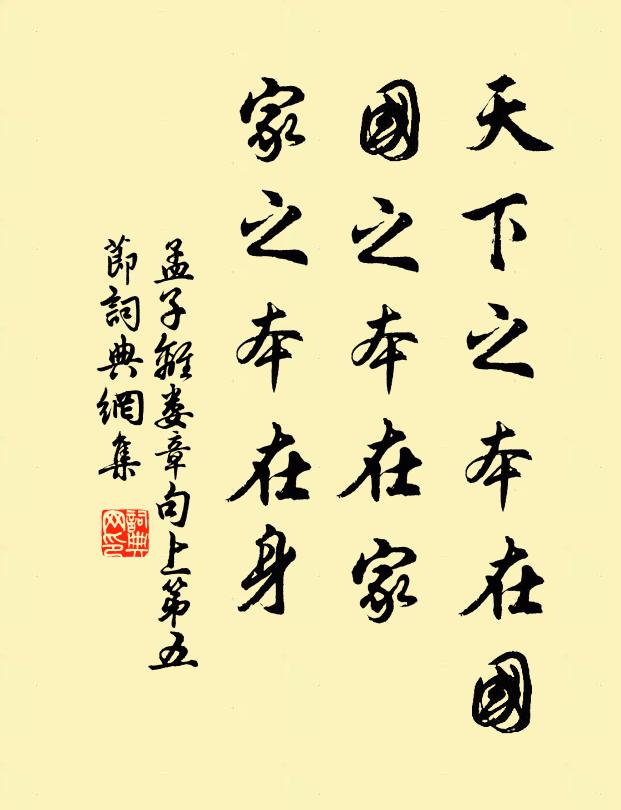 天下之本在國
國之本在家
家之本在身
孟子離娄章句上第五
節詞典網集
詞典
网印